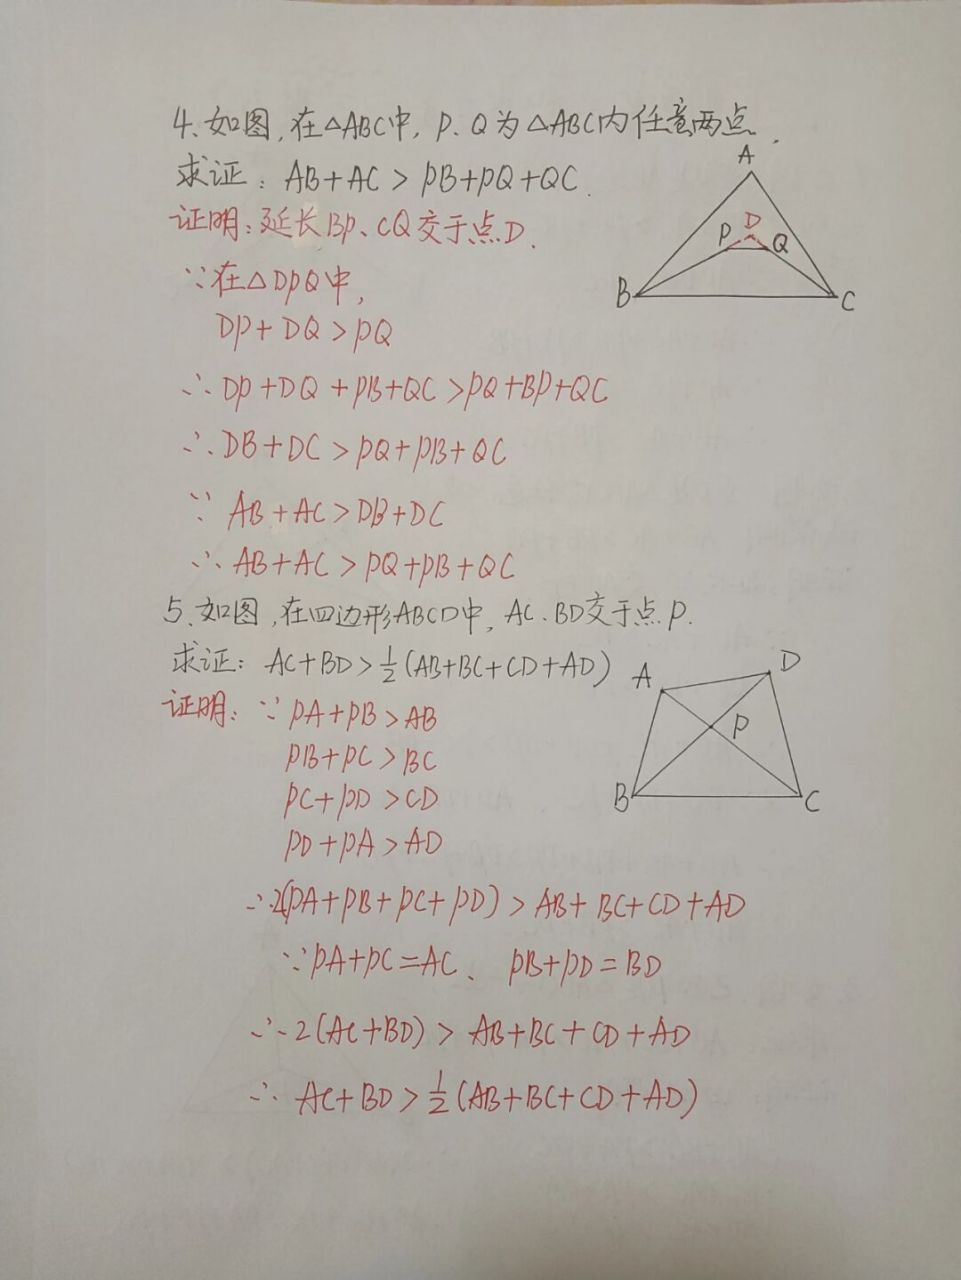 4、如图,在△ABC中, P、Q为△ABC内任意两点.
求证: AB+AC > PB+PQ+QC.
证明:延长BP、CQ交于点D.
∵在△DPQ中,
DP+DQ>PQ
∴DP+DQ+PB+QC>PQ+BP+QC
∴DB+DC>PQ+PB+QC
∵ AB+AC>DB+DC
∴AB+AC>PQ+PB+QC
A
D
P
Q
B
C
5、如图,在四边形ABCD中, AC、BD交于点P.
求证: AC+BD>½(AB+BC+CD+AD)
证明: ∵PA+PB>AB
PB+PC>BC
PC+PD>CD
PD+PA>AD
∴2(PA+PB+PC+PD)>AB+BC+CD+AD
∵PA+PC=AC、 PB+PD=BD
∴2(AC+BD)>AB+BC+CD+AD
∴ AC+BD>½(AB+BC+CD+AD)
A
D
P
B
C